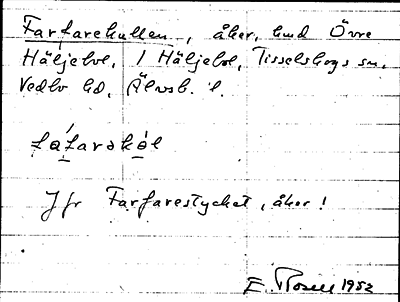 Farfarekullen, åker, hmd Övre
Häljebol, 1 Häljebol, Tisselskogs sn,
Vedbo hd, Älvsb. l.
Jfr Farfarestycket, åker!
E. Rosell 1952